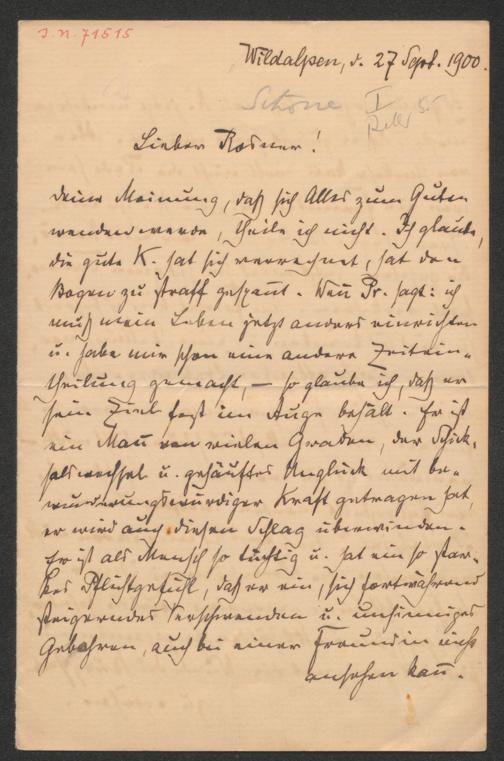 J.N. 71515
Wildalpen, d. 27 Sept. 1900.
Schöne I
Lieber Rosner!
Deine Meinung, daß sich Alles zum Guten
wenden werde, theile ich nicht. Ich glaube,
die gute K. hat sich verrechnet, hat den
Bogen zu straff gespan̄t. Wen̄ Pr. sagt: ich
muß mein Leben jetzt anders einrichten
u. habe mir schon eine andere Zeitein-
theilung gemacht, – so glaube ich, daß er
sein Ziel fest im Auge behält. Er ist
ein Man̄ von vielen Graden, der Schick-
salswechsel u. gehäuftes Unglück mit be-
wunderungswürdiger Kraft getragen hat,
er wird auch diesen Schlag überwinden.
Er ist als Mensch so tüchtig u. hat ein so star-
kes Pflichtgefühl, daß er ein, sich fortwährend
steigerndes Verschwenden u. unsinniges
Gebahren, auch bei einer Freundin nicht
ansehen kan̄.